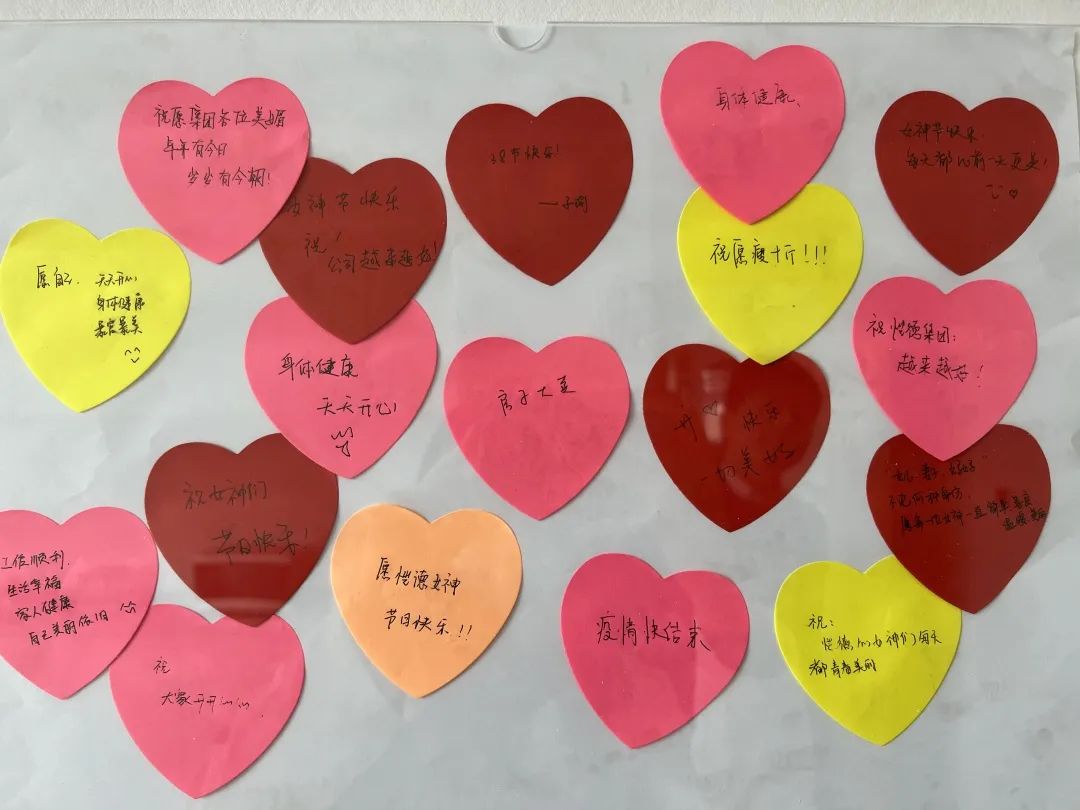 祝愿集团各位美媚
年年有今日
岁岁有今朝!
女神节快乐
祝!
公司越来越好!
38节快乐!
身体健康、
女神节快乐
每天都比前一天更美!
愿自己、天天开心
身体健康
最富最美
祝愿瘦十斤!!!
身体健康
天天开心!
房子大卖
开♡ 快乐
一切美好
祝恺德集团:
越来越好!
祝女神们
节日快乐!
不论何种身份,
愿每一位女神一直简单、善良
工作顺利
生活幸福
家人健康
自己美丽依旧
愿恺德女神
节日快乐!!
疫情快结束
祝:
恺德的女神们每天
都青春美丽
祝
大家开开心心